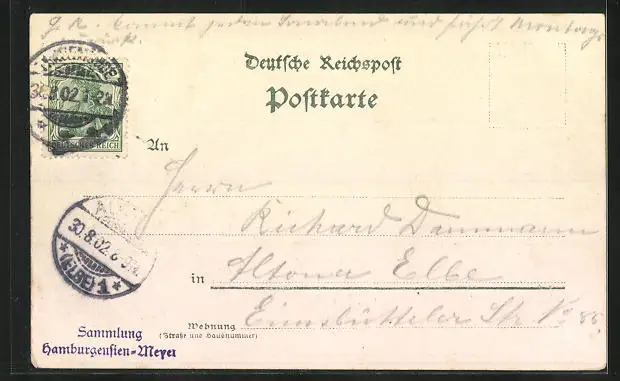 G. R. kommt jeden Sonnabend und fährt Montags
zurück.
Deutsche Reichspost
Postkarte
30.8.02
DEUTSCHES REICH
An
Herrn
Richard Dammann
in Altona Elbe
30.8.02
* 1 (ELBE) *
Wohnung Eimsbütteler Str. No 86
(Straße und Hausnummer)
Sammlung
Hamburgensien-Meyer